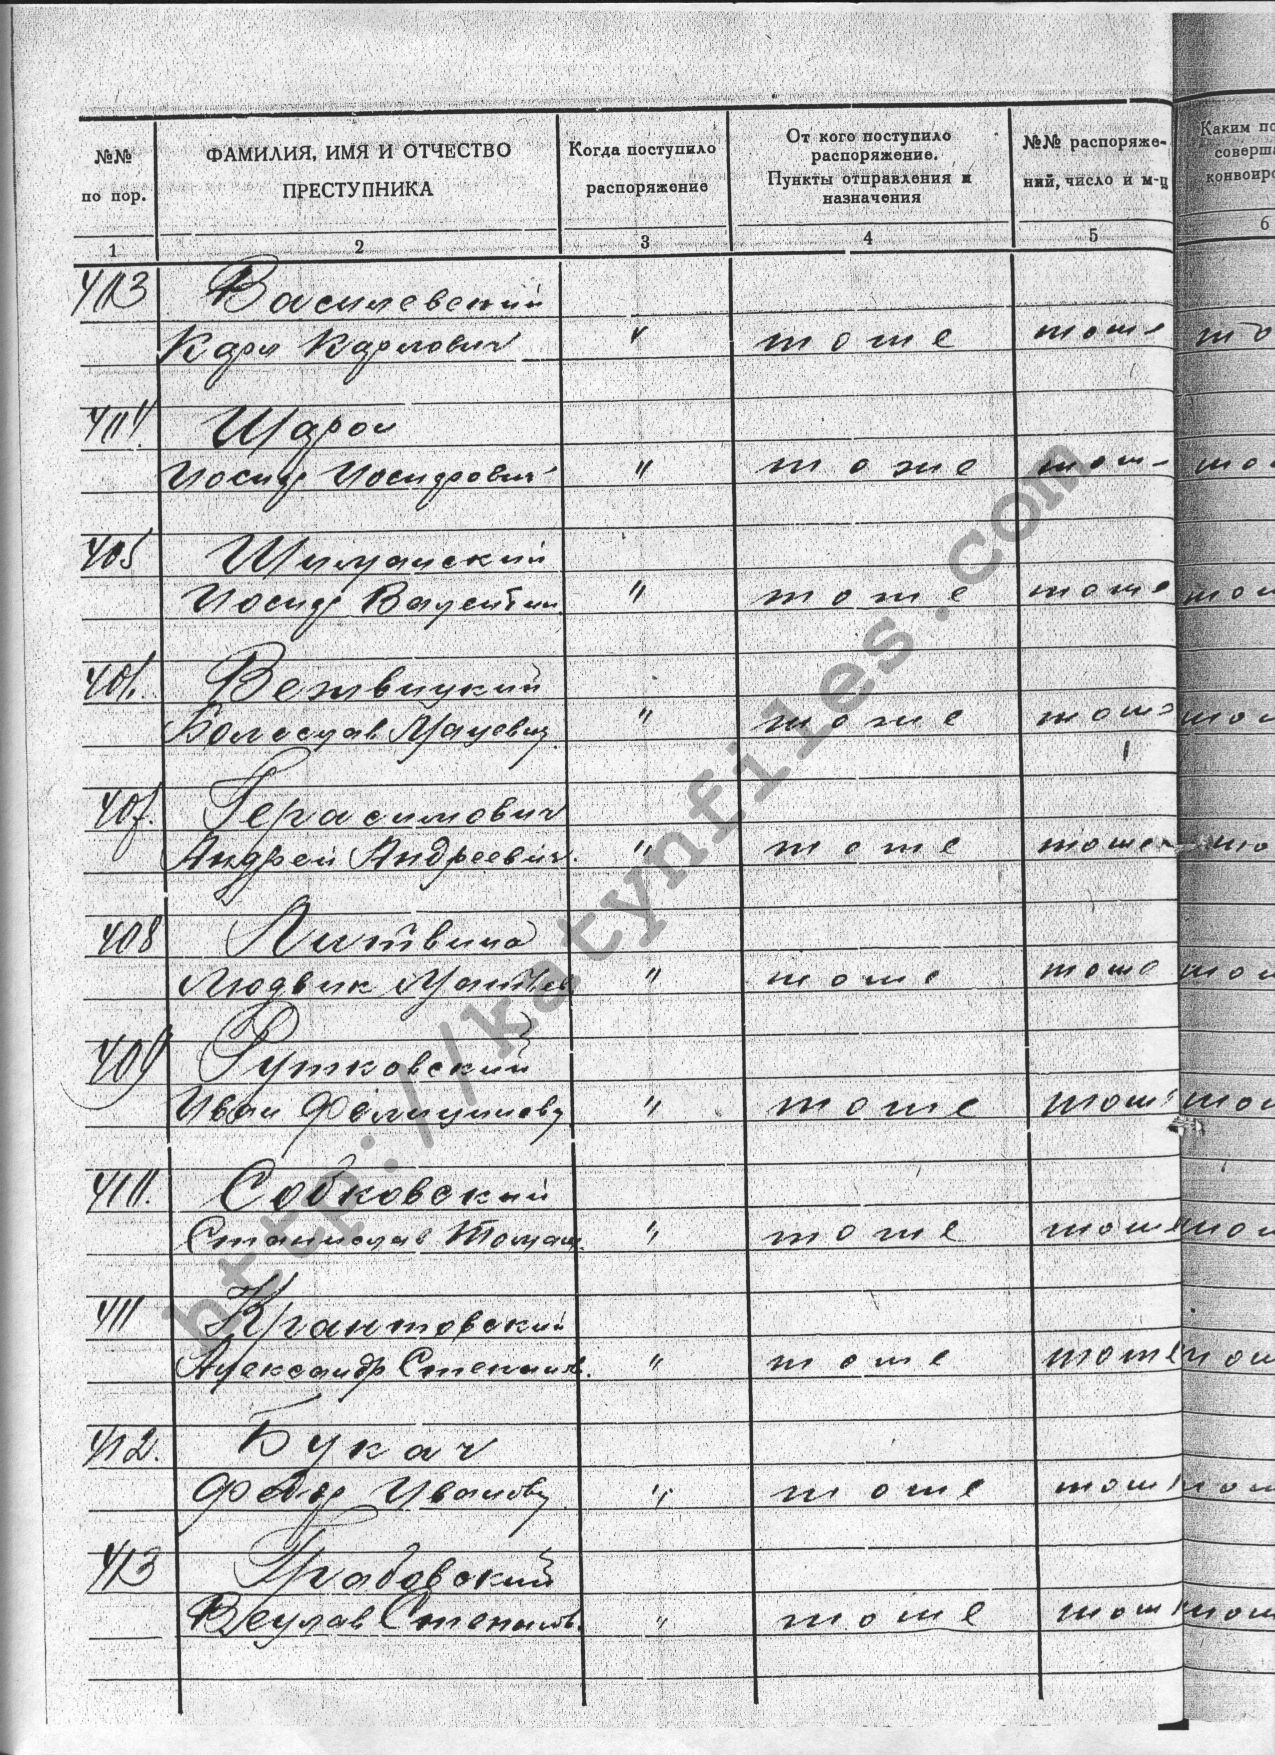 №№ по пор.
ФАМИЛИЯ, ИМЯ И ОТЧЕСТВО ПРЕСТУПНИКА
Когда поступило распоряжение
От кого поступило распоряжение. Пункты отправления и назначения
№№ распоряже-ний, число и м-ц
Каким по
соверша
конвоиро
1 2 3 4 5 6
403 Василевский
Карл Карлович " тоже тоже то
404
Иосиф Иосифович " тоже тож- то
405 Шиманский
Иосиф Валентин. " тоже тоже тож
406. Вержвицкий
Болеслав " тоже тоже тож
407. Герасимович
Андрей Андреевич. " тоже тоже то
408 Литвина
Людвик " тоже тоже тож
409 Рутковский
Иван " тоже тож тож
410. Собковский
Станислав Томаш. " тоже тоже тож
411
Александр Степанов. " тоже тоже тож
412. Букач
Федор Иванов " тоже тож тож
413 Грабовский
Вецлав Степанов. " тоже тож тож
http://katynfiles.com